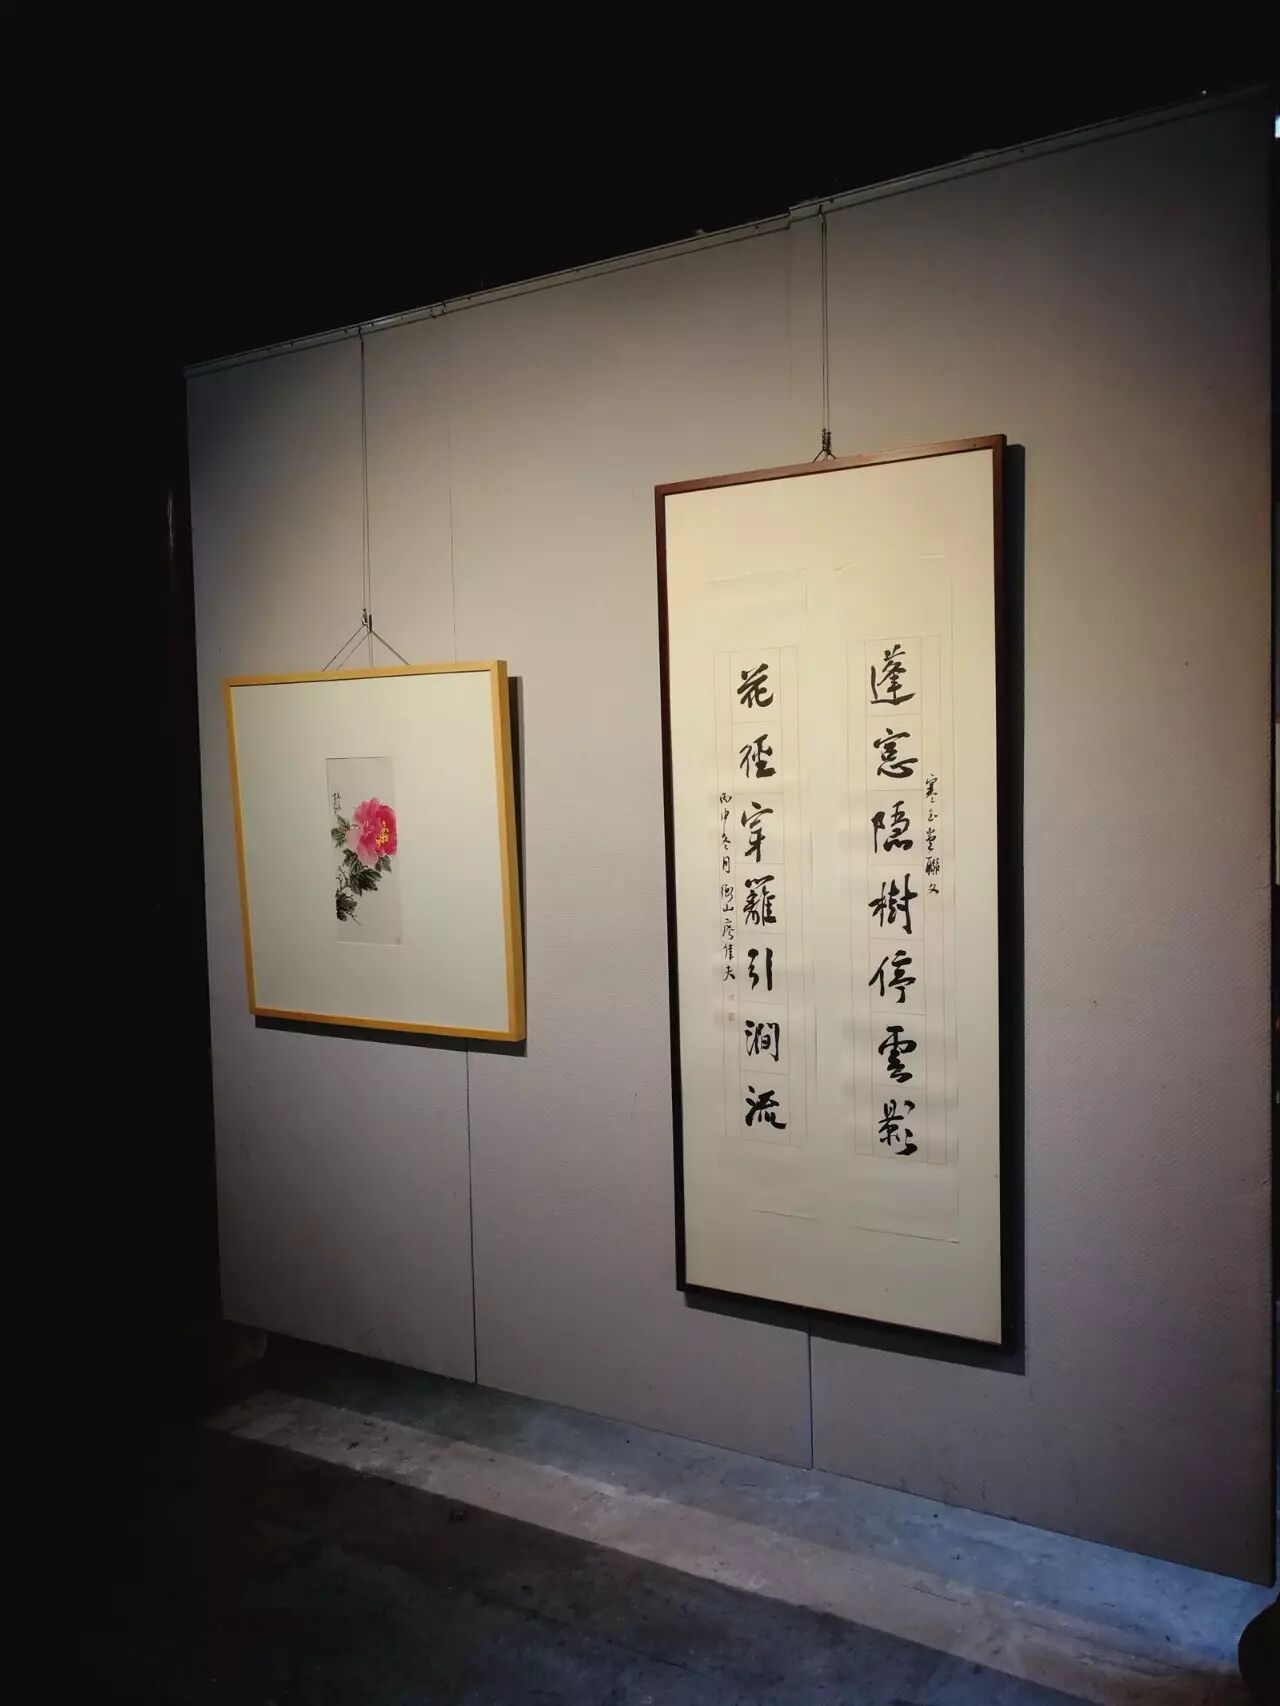 蓬窓隱樹停雲影
寒玉堂聯文
花徑穿籬引澗流
丙申冬月衡山廖偉夫